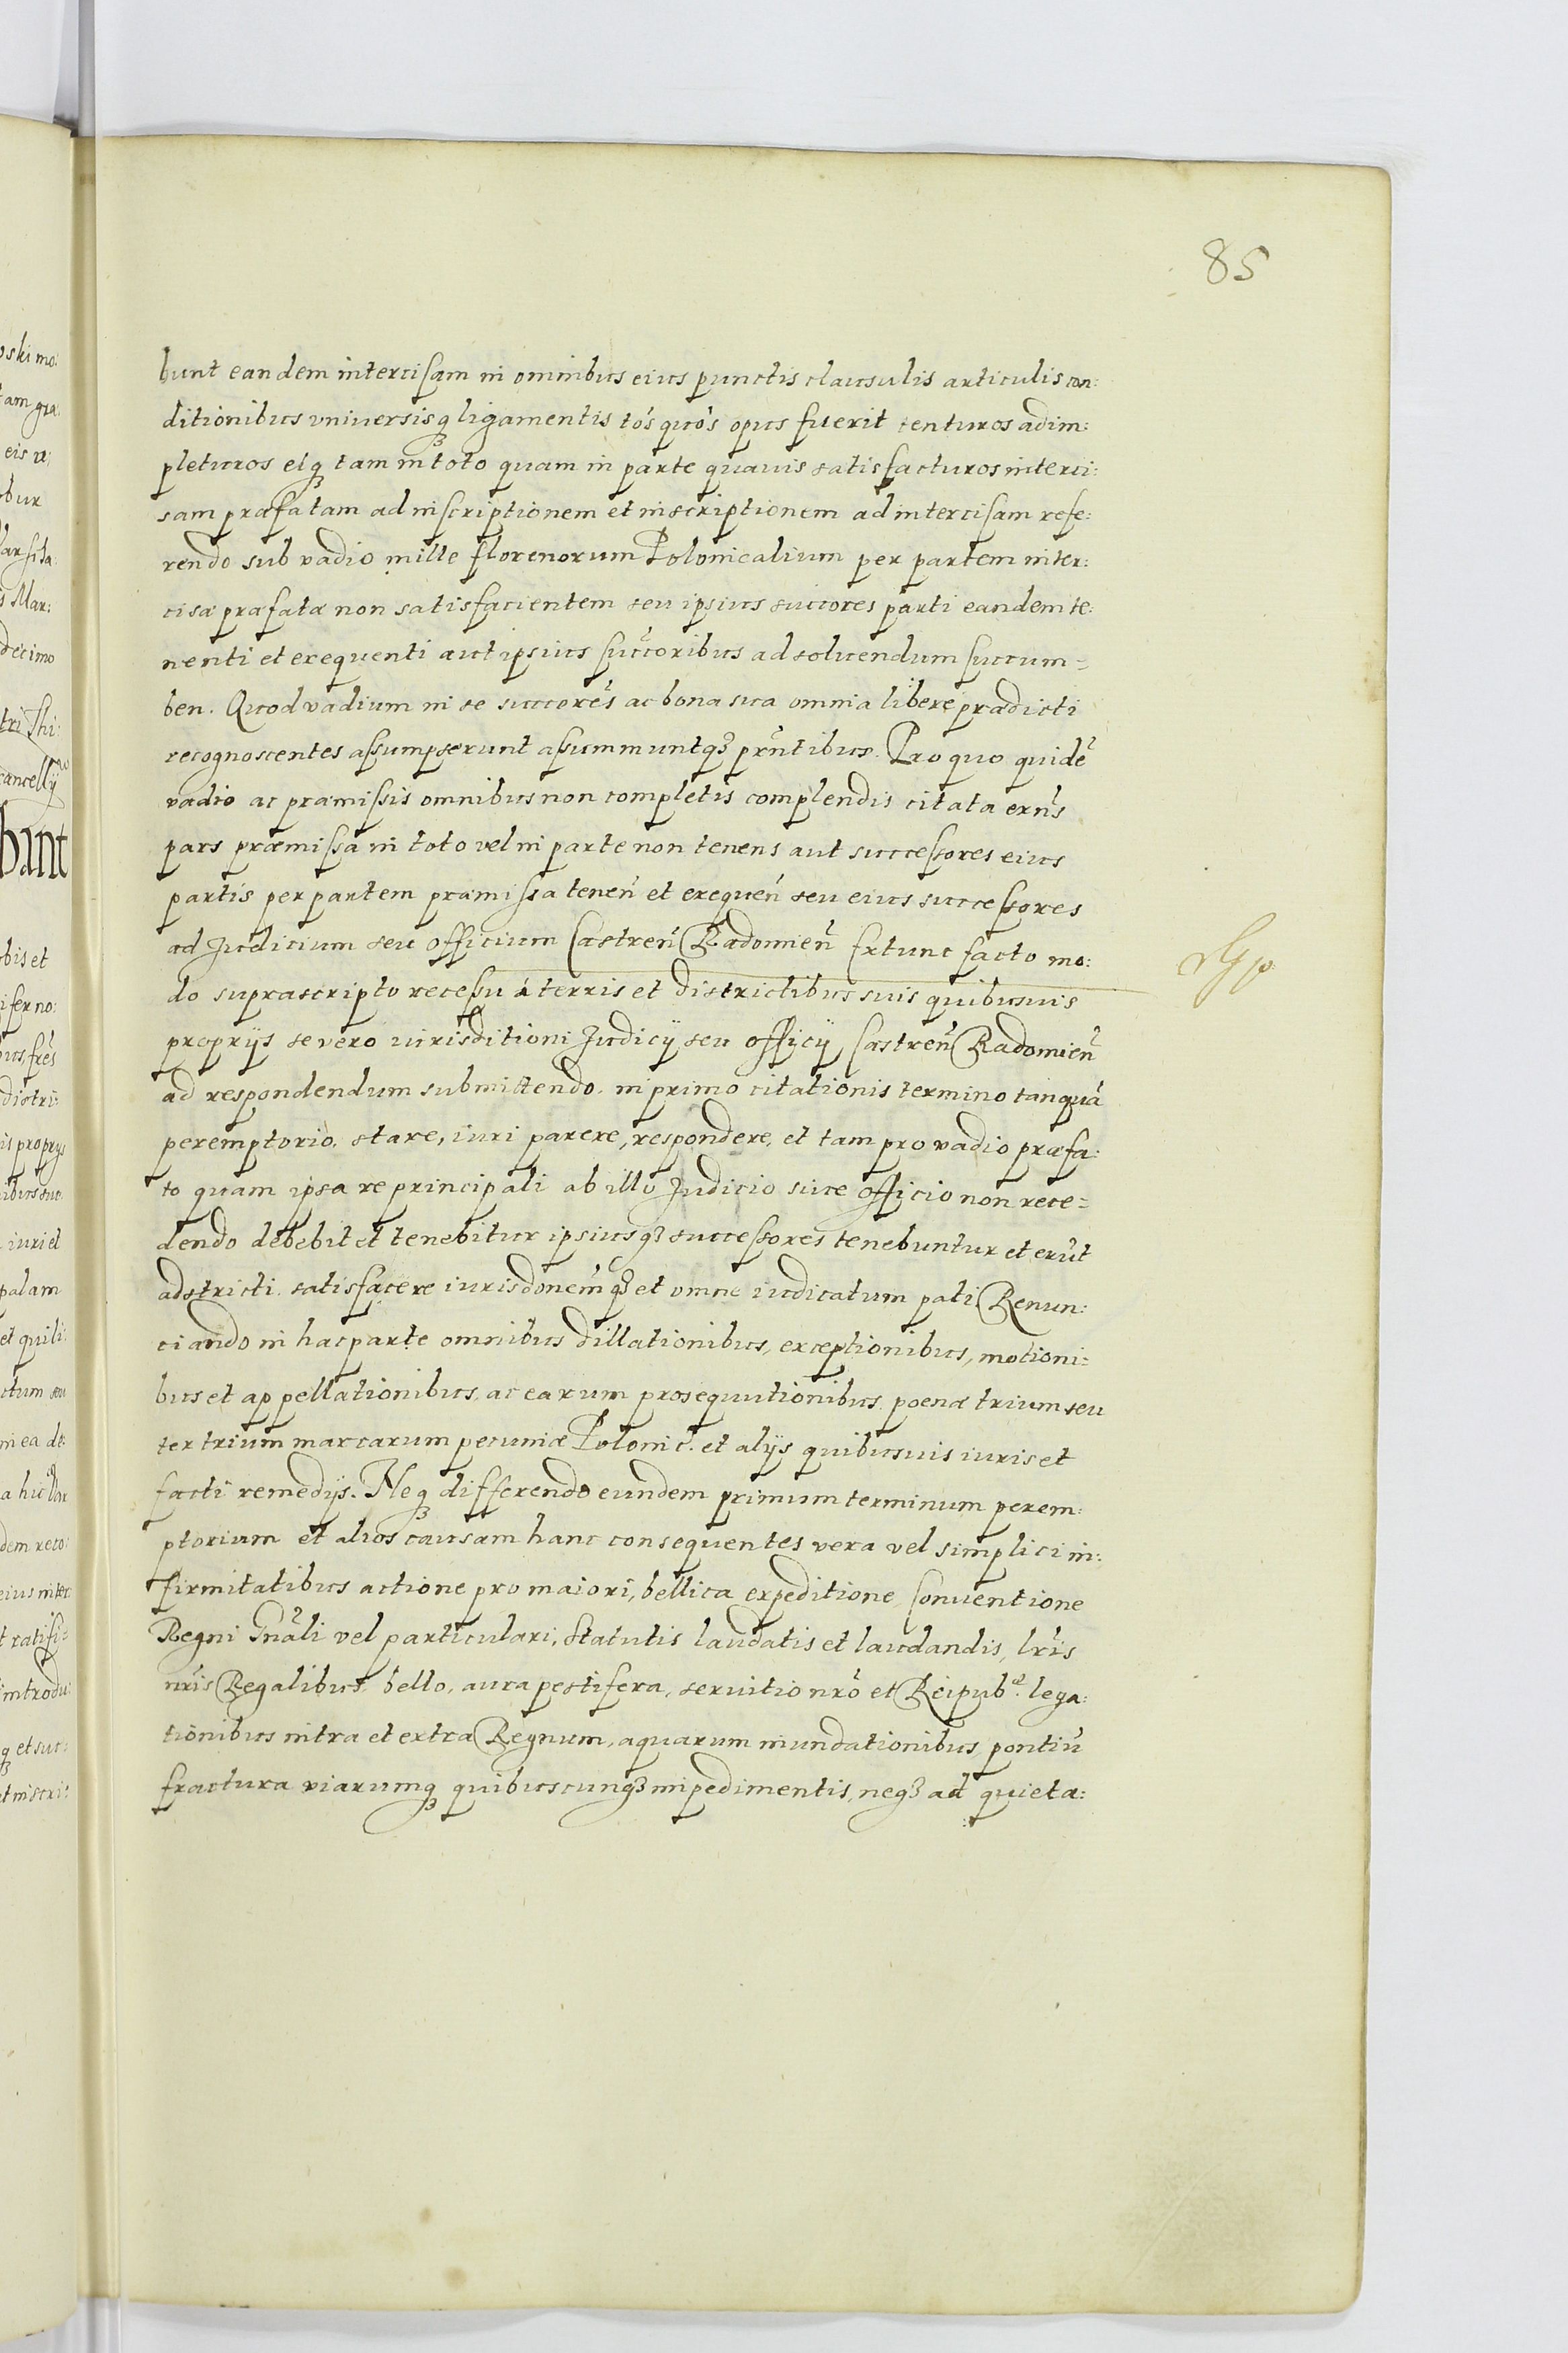 85
bunt eandem intercisam in omnibus eius punctis clausulis articulis con:
ditionibus vniuersisq3 ligamentis tós quós opus fuerit tenturos adim:
pleturos eiq3 tam in toto quam in parte quauis satisfacturos interci:
sam præfatam ad inscriptionem et inscriptionem ad intercisam refe:
rendo sub vadio mille florenorum Polonicalium per partem inter:
cisæ præfatæ non satisfacientem seu ipsius succores parti eandem te:
nenti et exequenti aut ipsius succoribus ad soluendum succum=
ben. Quod vadium in se succores ac bona sua omnia libere prædicti
recognoscentes assumpserunt assummuntq3 prñtibus. Pro quo quidẽ
vadio ac præmissis omnibus non completis complendis citata exñs
pars præmissa in toto vel in parte non tenens aut successores eius
partis per partem præmissa teneñ et exequeñ seu eius successores
ad Judicium seu officium Castreñ Radomieñ Extunc facto mo:
do suprascripto recessu á terris et districtibus suis quibusuis
proprijs se vero iurisditioni Judicij seu officij Castreñ Radomieñ
ad respondendum submittendo. in primo citationis termino tanquã
peremptorio. stare, iuri parere, respondere, et tam pro vadio præfa:
to quam ipsa re principali ab illo Judicio siue officio non rece=
dendo debebit et tenebitur ipsiusq3 successores tenebuntur et erũt
adstricti. satisfacere iurisdonẽmq3 et omne iudicatum pati Renun:
ciando in hac parte omnibus dillationibus, exceptionibus, motioni:
bus et appellationibus. ac earum prosequutionibus. poenæ trium seu
ter trium marcarum pecuniæ Polonic. et alijs quibusuis iuris et
facti remedijs. Neq3 differendo eundem primum terminum perem:
ptorium et alios causam hanc consequentes vera vel simplici in:
firmitatibus actione pro maiori, bellica expeditione, Conuentione
Regni Gnãli vel particulari, Statutis laudatis et laudandis, lr̃is
nr̃is Regalibus, bello, aura pestifera, seruitio nrõ et Reipub. lega:
tionibus intra et extra Regnum, aquarum inundationibus, pontiũ
fractura viarumq3 quibuscunq3 impedimentis, neq3 ad quieta: